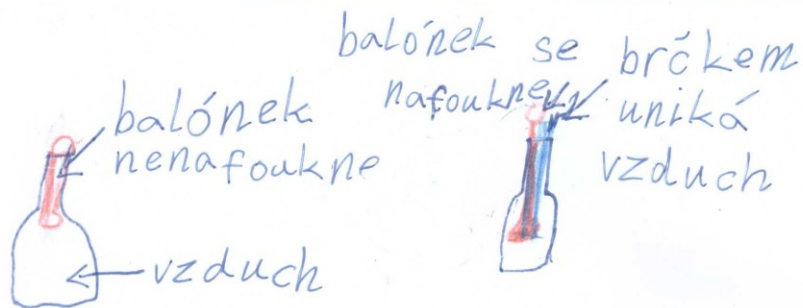 balónek
nenafoukne
vzduch
balónek se
nafoukne
brčkem
uniká
vzduch